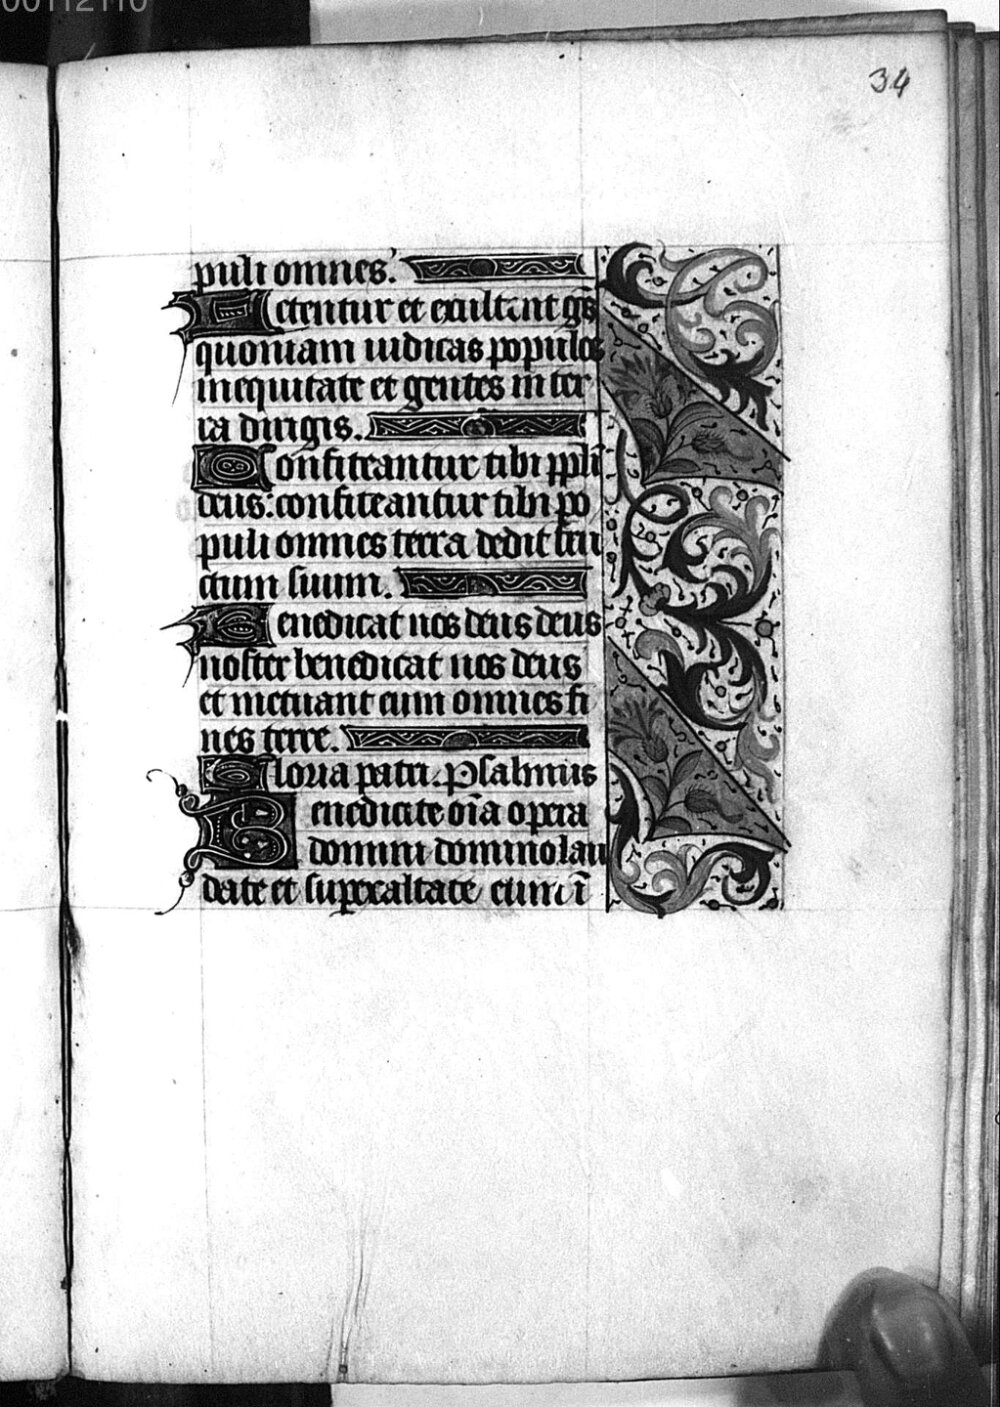 00112110
34
puli omnes.
Letentur et exultent gēs
quoniam iudicas populos
in equitate et gentes in ter
ra dirigis.
Confiteantur tibi ppli
deus: confiteantur tibi po
puli omnes terra dedit fru
ctum suum.
Benedicat nos deus deus
noster benedicat nos deus
et metuant eum omnes fi
nes terre.
Gloria patri. Psalmus
Benedicite oīa opera
domini domino lau
date et superexaltate eum ī